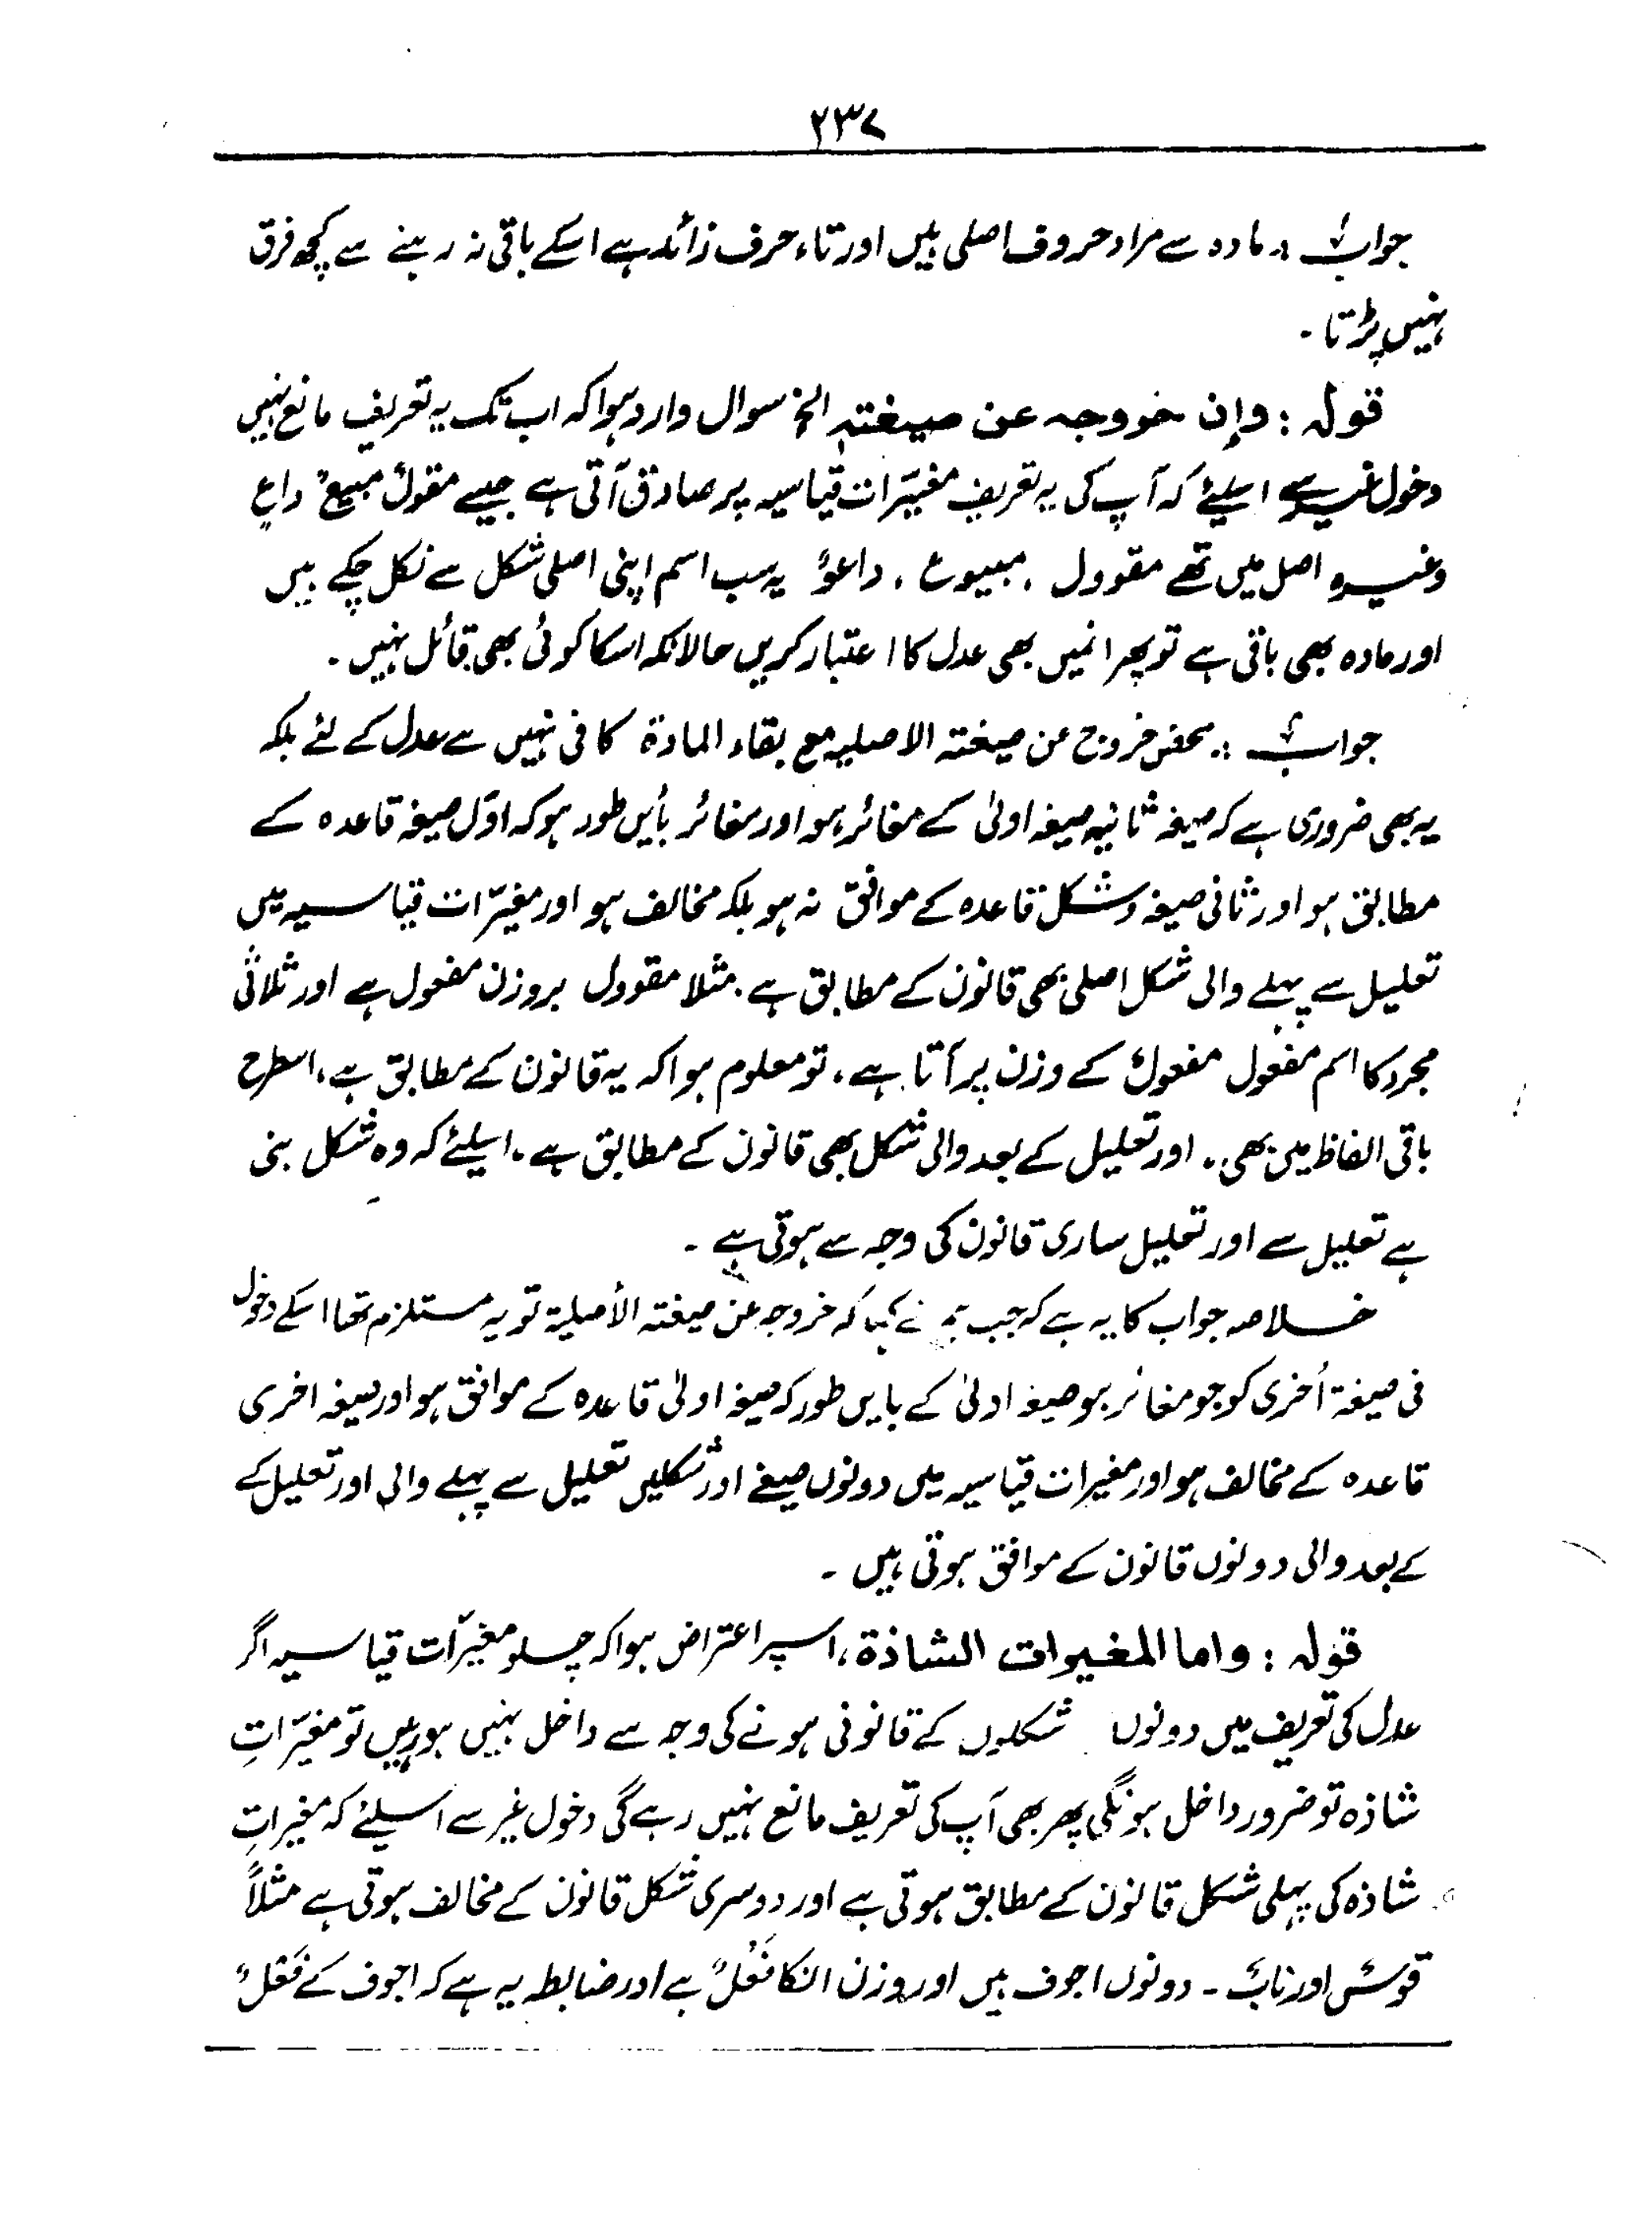 ۲۳۷
جواب :۔ مادہ سے مراد حروف اصلی ہیں اور تاء حرف زائد ہے اسکے باقی نہ رہنے سے کچھ فرق
نہیں پڑتا ۔
قولہ : وإن خروجہ عن صیغتہ الخ سوال وارد ہوا کہ اب تک یہ تعریف مانع نہیں
دخول غیر سے اسلئے کہ آپ کی یہ تعریف مغیّرات قیاسیہ پر صادق آتی ہے جیسے مقولٌ مبیعٌ داعٍ
وغیرہ اصل میں تھے مقوول ، مبیوع ، داعوٌ یہ سب اسم اپنی اصلی شکل سے نکل چکے ہیں
اور مادہ بھی باقی ہے تو پھر انمیں بھی عدل کا اعتبار کریں حالانکہ اسکا کوئی بھی قائل نہیں ۔
جواب :۔ محض خروج من صیغتہ الاصلیہ مع بقاء المادۃ کافی نہیں ہے عدل کے لئے بلکہ
یہ بھی ضروری ہے کہ صیغہ ثانیہ صیغہ اولیٰ کے مغائر ہو اور مغائر بایں طور ہو کہ اوّل صیغہ قاعدہ کے
مطابق ہو اور ثانی صیغہ و شکل قاعدہ کے موافق نہ ہو بلکہ مخالف ہو اور مغیّرات قیاسیہ میں
تعلیل سے پہلے والی شکل اصلی بھی قانون کے مطابق ہے ۔ مثلا مقوول بروزن مفعول ہے اور ثلاثی
مجرد کا اسم مفعول مفعولٌ کے وزن پر آتا ہے ، تو معلوم ہوا کہ یہ قانون کے مطابق ہے ، اسطرح
باقی الفاظ میں بھی ۔ اور تعلیل کے بعد والی شکل بھی قانون کے مطابق ہے ۔ اسلئے کہ وہ شکل بنی
ہے تعلیل سے اور تعلیل ساری قانون کی وجہ سے ہوتی ہے ۔
خلاصہ جواب کا یہ ہے کہ جب ہم نے کہا کہ خروجہ عن صیغتہ الأصلیۃ تو یہ مستلزم تھا اسکے دخول
فی صیغۃ أخری کو جو مغائر ہو صیغہ اولیٰ کے بایں طور کہ صیغہ اولیٰ قاعدہ کے موافق ہو اور صیغہ اخری
قاعدہ کے مخالف ہو اور مغیرات قیاسیہ میں دونوں صیغے اور شکلیں تعلیل سے پہلے والی اور تعلیل کے
کے بعد والی دونوں قانون کے موافق ہوتی ہیں ۔
قولہ : واما المغیرات الشاذۃ ، اسپر اعتراض ہوا کہ چلو مغیّرات قیاسیہ اگر
عدل کی تعریف میں دونوں شکلوں کے قانونی ہونے کی وجہ سے داخل نہیں ہو رہیں تو مغیّراتِ
شاذہ تو ضرور داخل ہونگی پھر بھی آپ کی تعریف مانع نہیں رہے گی دخول غیر سے اسلئے کہ مغیراتِ
شاذہ کی پہلی شکل قانون کے مطابق ہوتی ہے اور دوسری شکل قانون کے مخالف ہوتی ہے مثلاً
قوسٌ اور نابٌ ۔ دونوں اجوف ہیں اور وزن انکا فَعْلٌ ہے اور ضابطہ یہ ہے کہ اجوف کے فَعْلٌ